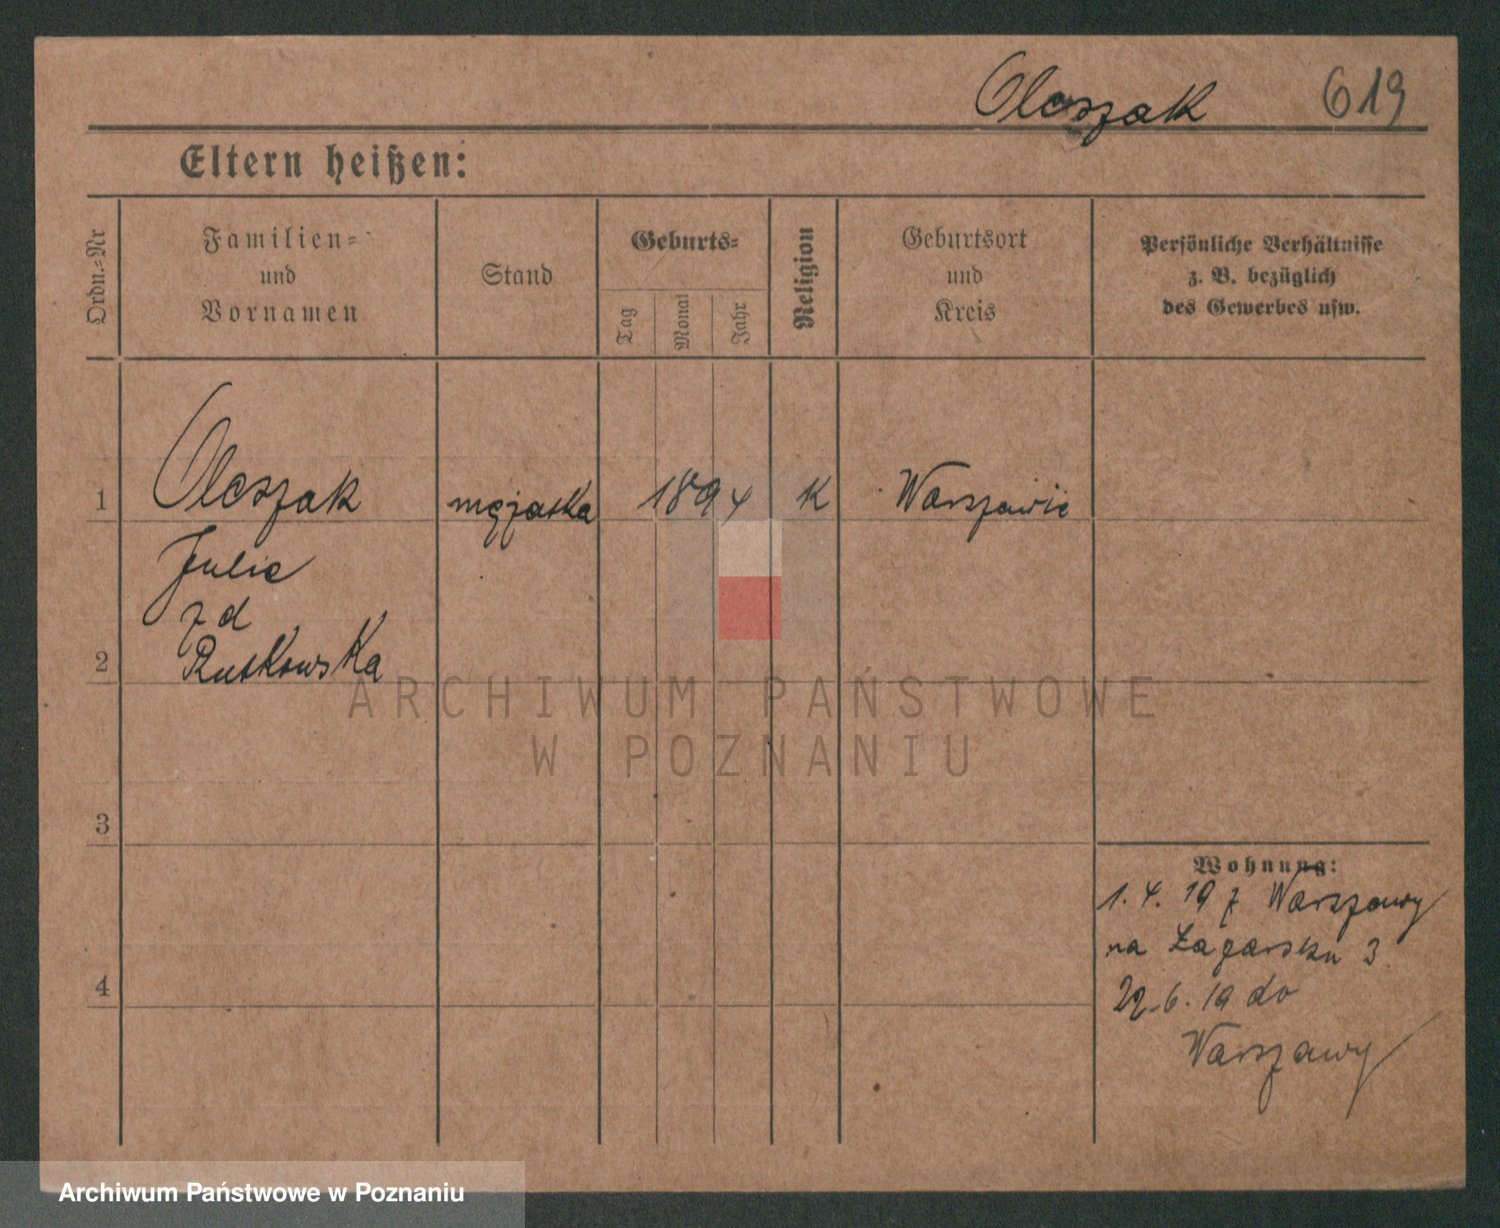 Oleszak 619
Eltern heißen:
Ordn.-Nr
Familien-
und
Vornamen
Stand
Geburts-
Tag
Monat
Jahr
Religion
Geburtsort
und
Kreis
Persönliche Verhältnisse
z. B. bezüglich
des Gewerbes usw.
1 Oleszak mężatka 1894 K Warszawie
Julie
z d
2 Rutkowska
3
4
Wohnung:
1. 4. 19 z Warszawy
na Łazarsku 3
22.6.19 do
Warszawy
ARCHIWUM PAŃSTWOWE
W POZNANIU
Archiwum Państwowe w Poznaniu